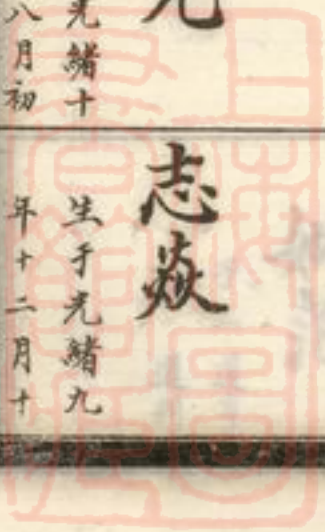 光緒十
八月初
志焱
生于光緒九
年十二月十